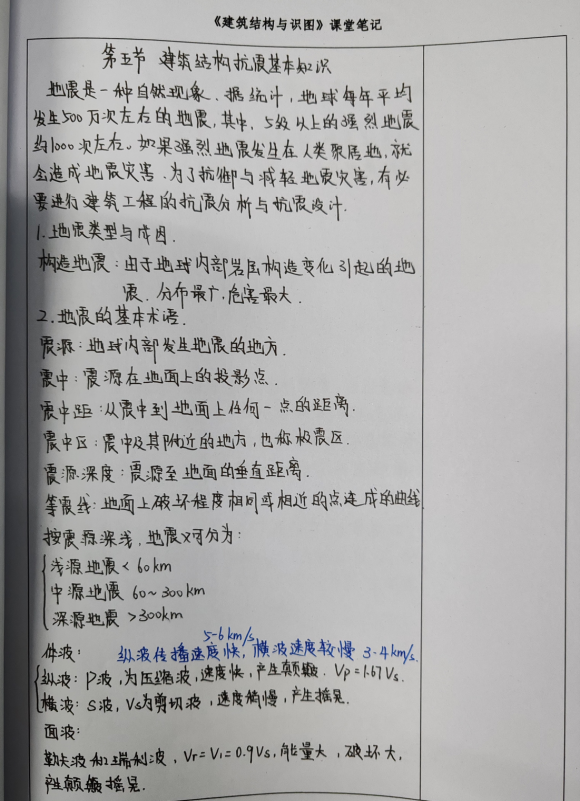 《建筑结构与识图》课堂笔记
第五节 建筑结构抗震基本知识
地震是一种自然现象、据统计，地球每年平均
发生500万次左右的地震，其中，5级以上的强烈地震
约1000次左右。如果强烈地震发生在人类聚居地，就
会造成地震灾害、为了抗御与减轻地震灾害，有必
要进行建筑工程的抗震分析与抗震设计.
1.地震类型与成因.
构造地震：由于地球内部岩层构造变化引起的地
震、分布最广，危害最大.
2.地震的基本术语.
震源：地球内部发生地震的地方.
震中：震源在地面上的投影点.
震中距：从震中到地面上任何一点的距离.
震中区：震中及其附近的地方，也称极震区.
震源深度：震源至地面的垂直距离.
等震线：地面上破坏程度相同或相近的点连成的曲线
按震源深浅，地震又可分为：
浅源地震<60km
中源地震 60~300km
深源地震 >300km
5-6km/s
体波： 纵波传播速度快，横波速度较慢 3-4km/s.
纵波：P波，为压缩波，速度快，产生颠簸. Vp=1.67Vs.
横波：S波，Vs为剪切波，速度稍慢，产生摇晃.
面波：
勒夫波和瑞利波，Vr=V₁=0.9Vs，能量大，破坏大，
产生颠簸摇晃.